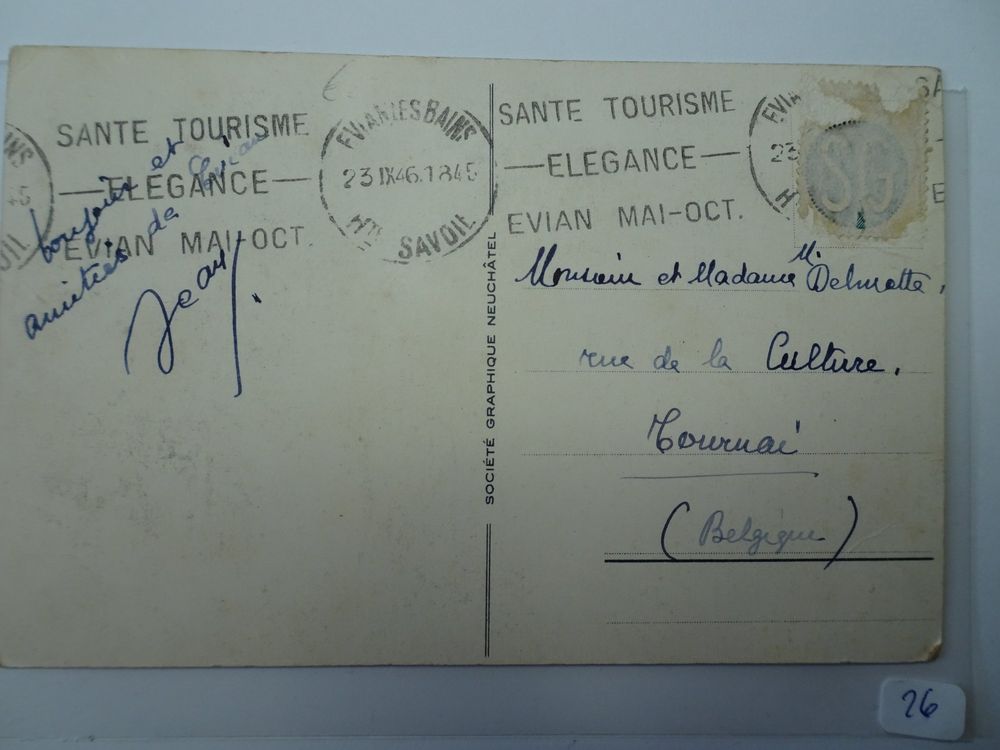 SANTE TOURISME
ELEGANCE
EVIAN MAI-OCT.
EVIAN LES BAINS
23 IX 46. 1845
HTE SAVOIE
bonjour et
amitiés de
Evian
Jean.
SOCIÉTÉ GRAPHIQUE NEUCHÂTEL
SANTE TOURISME
ELEGANCE
EVIAN MAI-OCT.
EVIA
23
H
SA
E
SG
Monsieur et Madame M. Delmotte,
rue de la Culture.
Tournai
(Belgique)
26